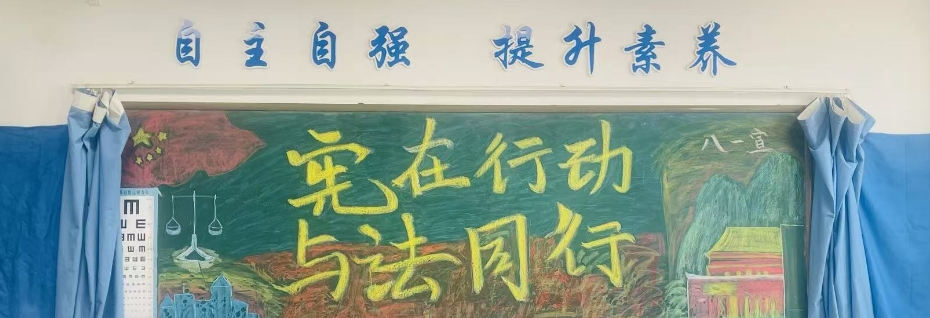 自主自强 提升素养
宪在行动
与法同行
八一宣